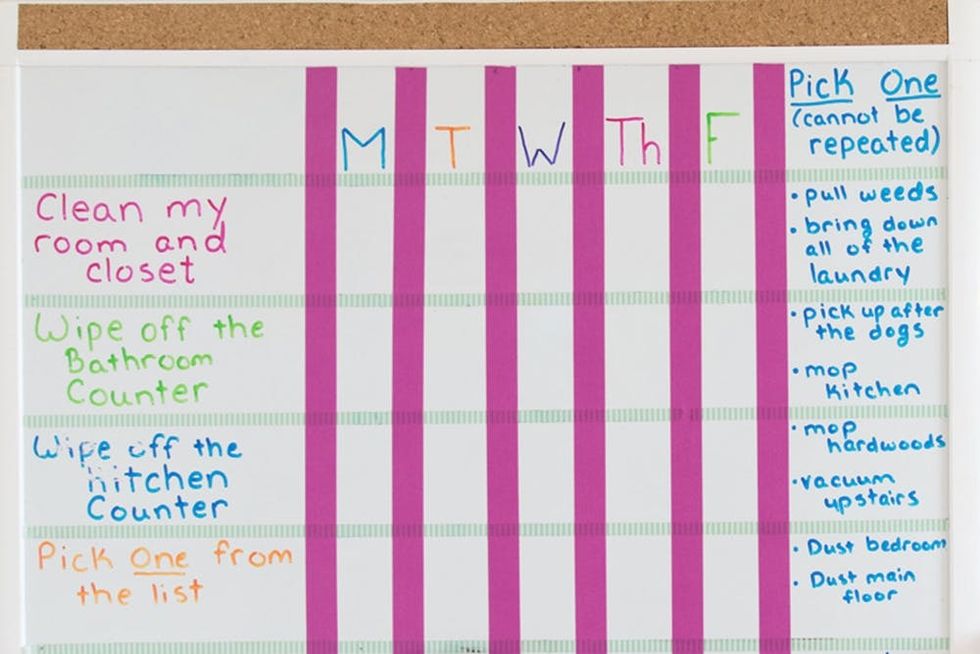 M T W Th F
Pick One
(cannot be
repeated)
Clean my
room and
closet
Wipe off the
Bathroom
Counter
Wipe off the
Kitchen
Counter
Pick One from
the list
• pull weeds
• bring down
all of the
laundry
• pick up after
the dogs
• mop
kitchen
• mop
hardwoods
• vacuum
upstairs
• Dust bedroom
• Dust main
floor